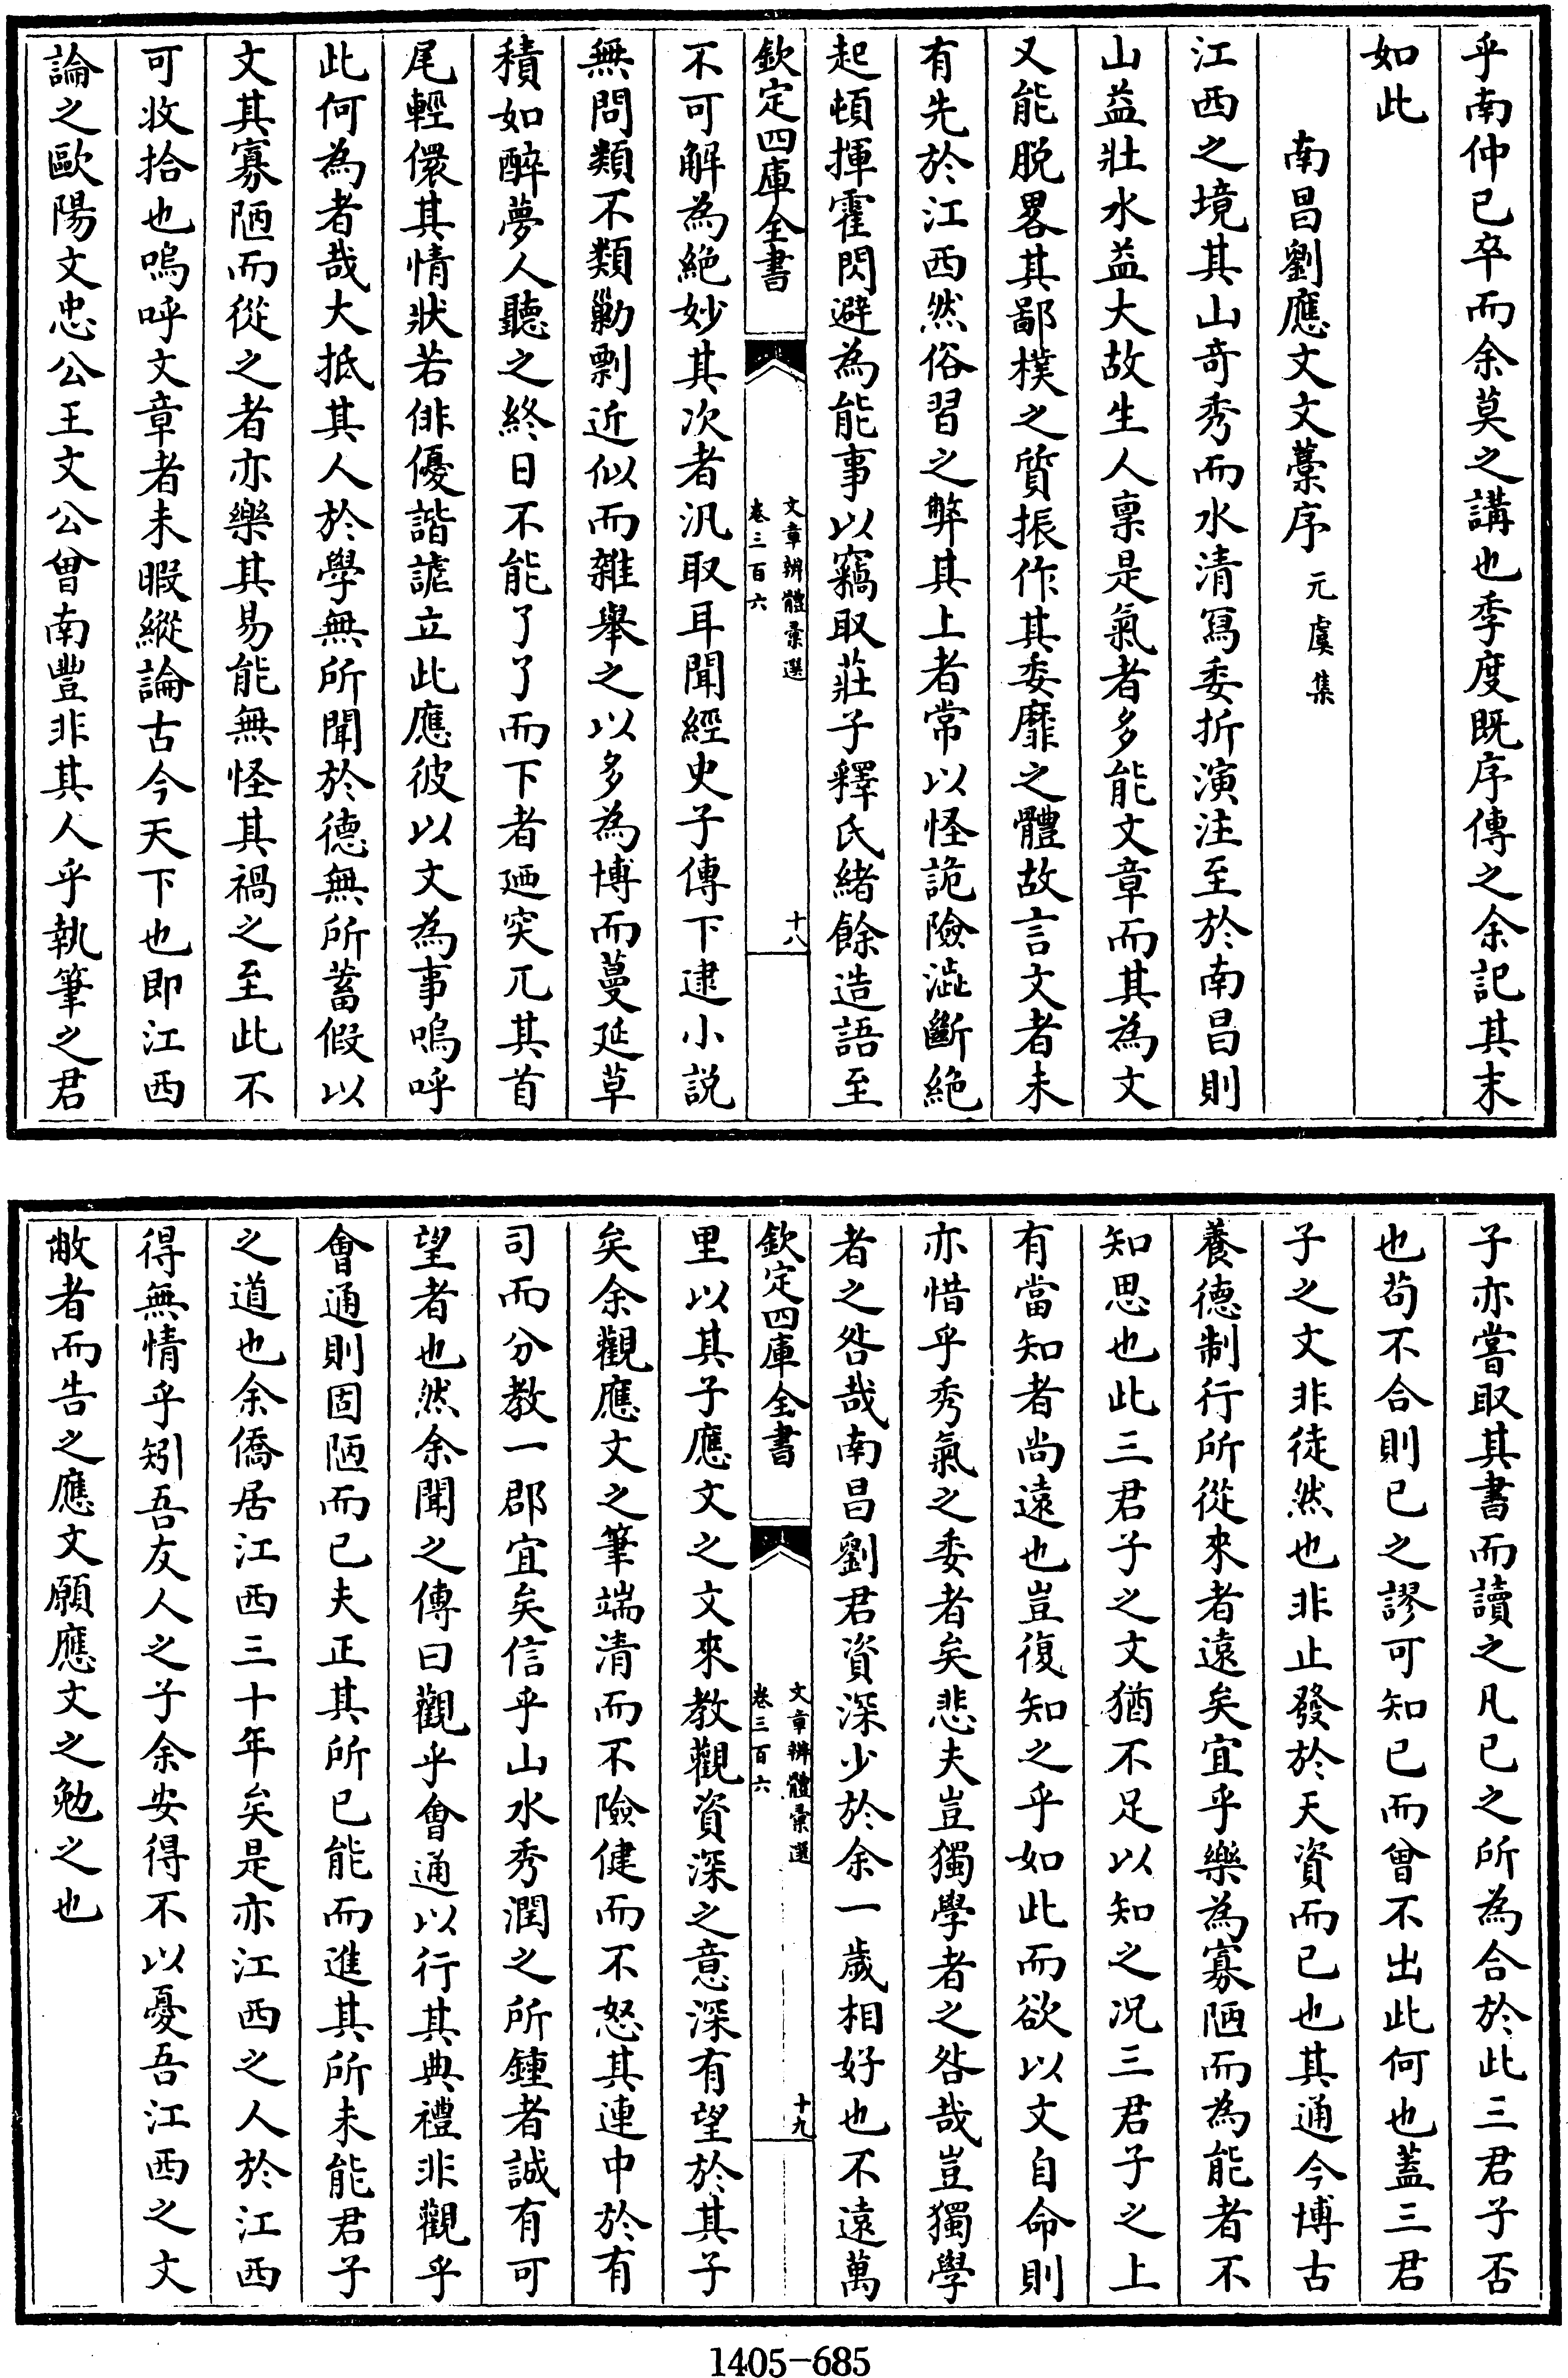 乎南仲已卒而余莫之講也季度既序傳之余記其末
如此
南昌劉應文文藁序 元虞集
江西之境其山奇秀而水清冩委折演注至於南昌則
山益壯水益大故生人禀是氣者多能文章而其為文
又能脱畧其鄙樸之質振作其委靡之體故言文者未
有先於江西然俗習之弊其上者常以怪詭險澁斷絶
起頓揮霍閃避為能事以竊取莊子釋氏緒餘造語至
欽定四庫全書
文章辨體彚選
卷三百六
十八
不可解為絶妙其次者汎取耳聞經史子傳下逮小説
無問類不類勦剽近似而雜舉之以多為博而蔓延草
積如醉夢人聽之終日不能了了而下者廼突兀其首
尾輕儇其情狀若俳優諧謔立此應彼以文為事嗚呼
此何為者哉大抵其人於學無所聞於德無所蓄假以
文其寡陋而從之者亦樂其易能無怪其禍之至此不
可收拾也嗚呼文章者未暇縱論古今天下也即江西
論之歐陽文忠公王文公曾南豐非其人乎執筆之君
子亦嘗取其書而讀之凡已之所為合於此三君子否
也苟不合則已之謬可知已而曾不出此何也蓋三君
子之文非徒然也非止發於天資而已也其通今博古
養德制行所從來者遠矣宜乎樂為寡陋而為能者不
知思也此三君子之文猶不足以知之况三君子之上
有當知者尚遠也豈復知之乎如此而欲以文自命則
亦惜乎秀氣之委者矣悲夫豈獨學者之咎哉豈獨學
者之咎哉南昌劉君資深少於余一歲相好也不遠萬
欽定四庫全書
文章辨體彚選
卷三百六
十九
里以其子應文之文來教觀資深之意深有望於其子
矣余觀應文之筆端清而不險健而不怒其連中於有
司而分教一郡宜矣信乎山水秀潤之所鍾者誠有可
望者也然余聞之傳曰觀乎會通以行其典禮非觀乎
會通則固陋而已夫正其所已能而進其所未能君子
之道也余僑居江西三十年矣是亦江西之人於江西
得無情乎矧吾友人之子余安得不以憂吾江西之文
敝者而告之應文願應文之勉之也
1405-685